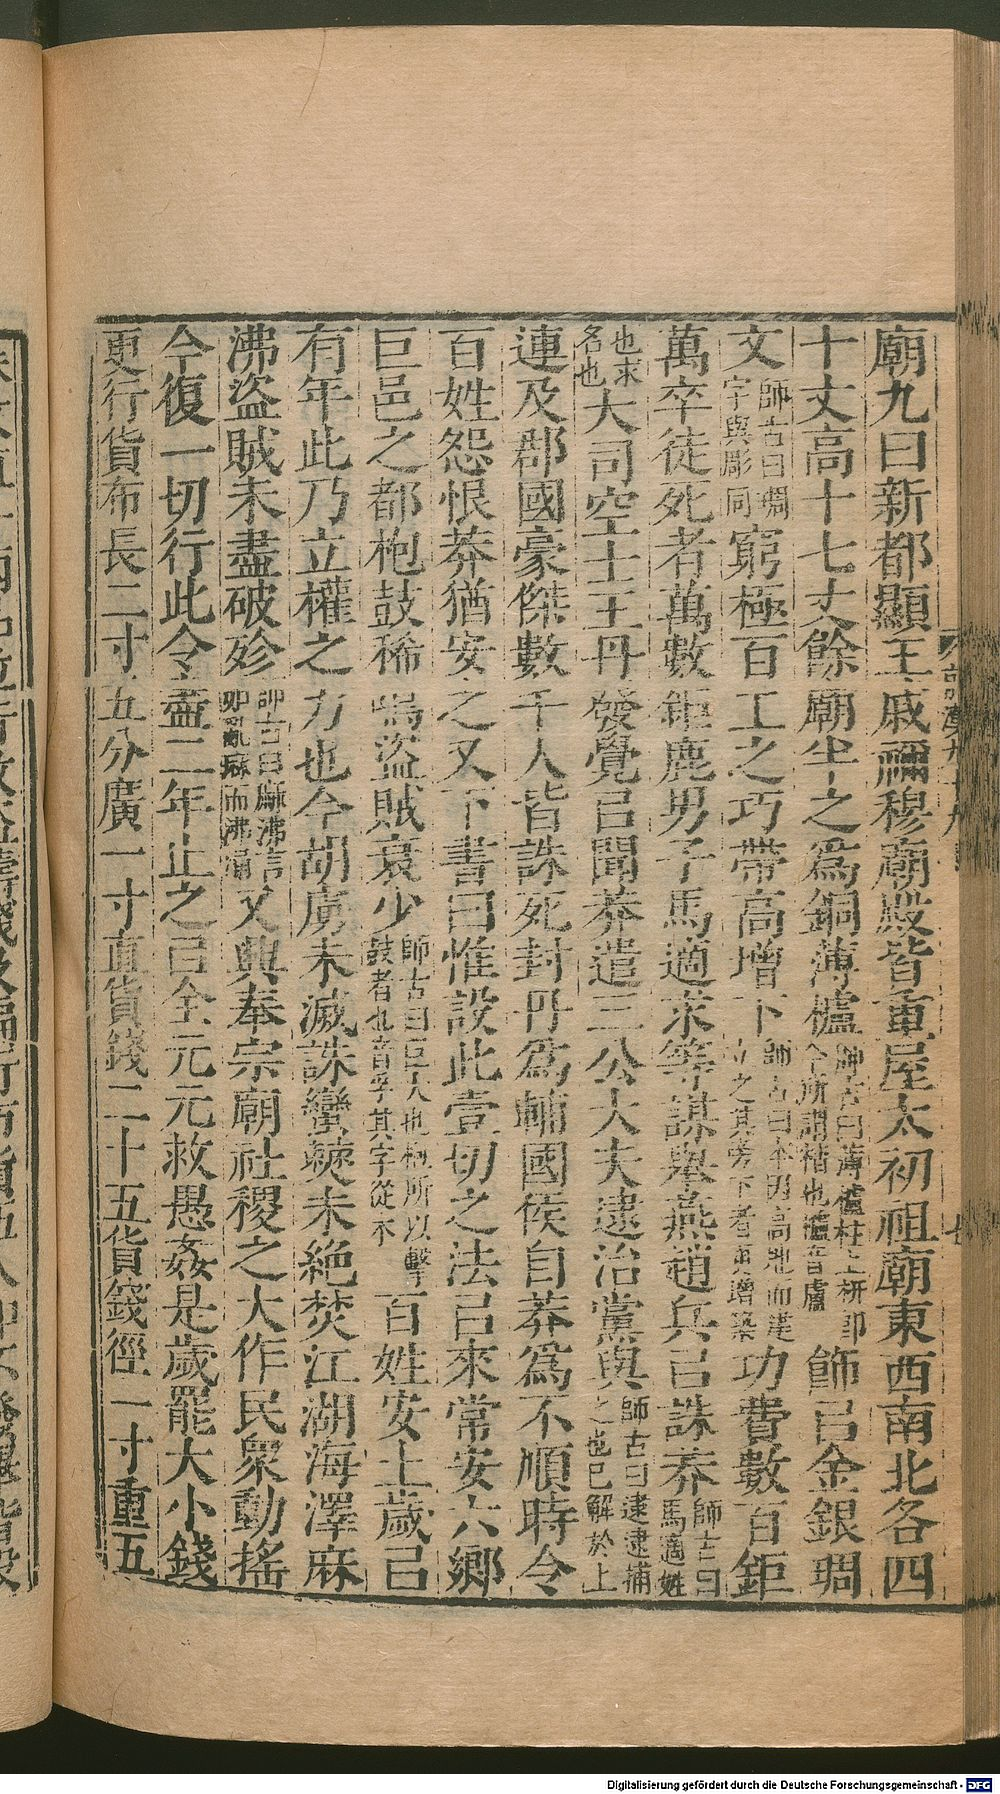 廟九曰新都顯王戚禰穆廟殿皆重屋太初祖廟東西南北各四
十丈高十七丈餘廟半之爲銅薄櫨師古曰薄櫨柱上枅卽今所謂㭼也櫨音盧飾㠯金銀琱
文師古曰琱字與彫同窮極百工之巧帶高增下師古曰本因高地而建立之其旁下者更增築功費數百鉅
萬卒徒死者萬數鉅鹿男子馬適求等謀舉燕趙兵㠯誅莽師古曰馬適姓
也求名也大司空士王丹發覺㠯聞莽遣三公大夫逮治黨與師古曰逮逮捕之也已解於上
連及郡國豪傑數千人皆誅死封丹爲輔國侯自莽爲不順時令
百姓怨恨莽猶安之又下書曰惟設此壹切之法㠯來常安六鄉
巨邑之都枹鼓稀鳴盜賊衰少師古曰巨大也枹所以擊鼓者也音孚其字從木百姓安土歲㠯
有年此乃立權之力也今胡虜未滅誅蠻僰未絕焚江湖海澤麻
沸盜賊未盡破殄師古曰麻沸言如亂麻而沸涌又興奉宗廟社稷之大作民衆動搖
今復一切行此令盡二年止之㠯全元元救愚姦是歲罷大小錢
更行貨布長二寸五分廣一寸直貨錢二十五貨錢徑一寸重五
前漢九十九
Digitalisierung gefördert durch die Deutsche Forschungsgemeinschaft - DFG